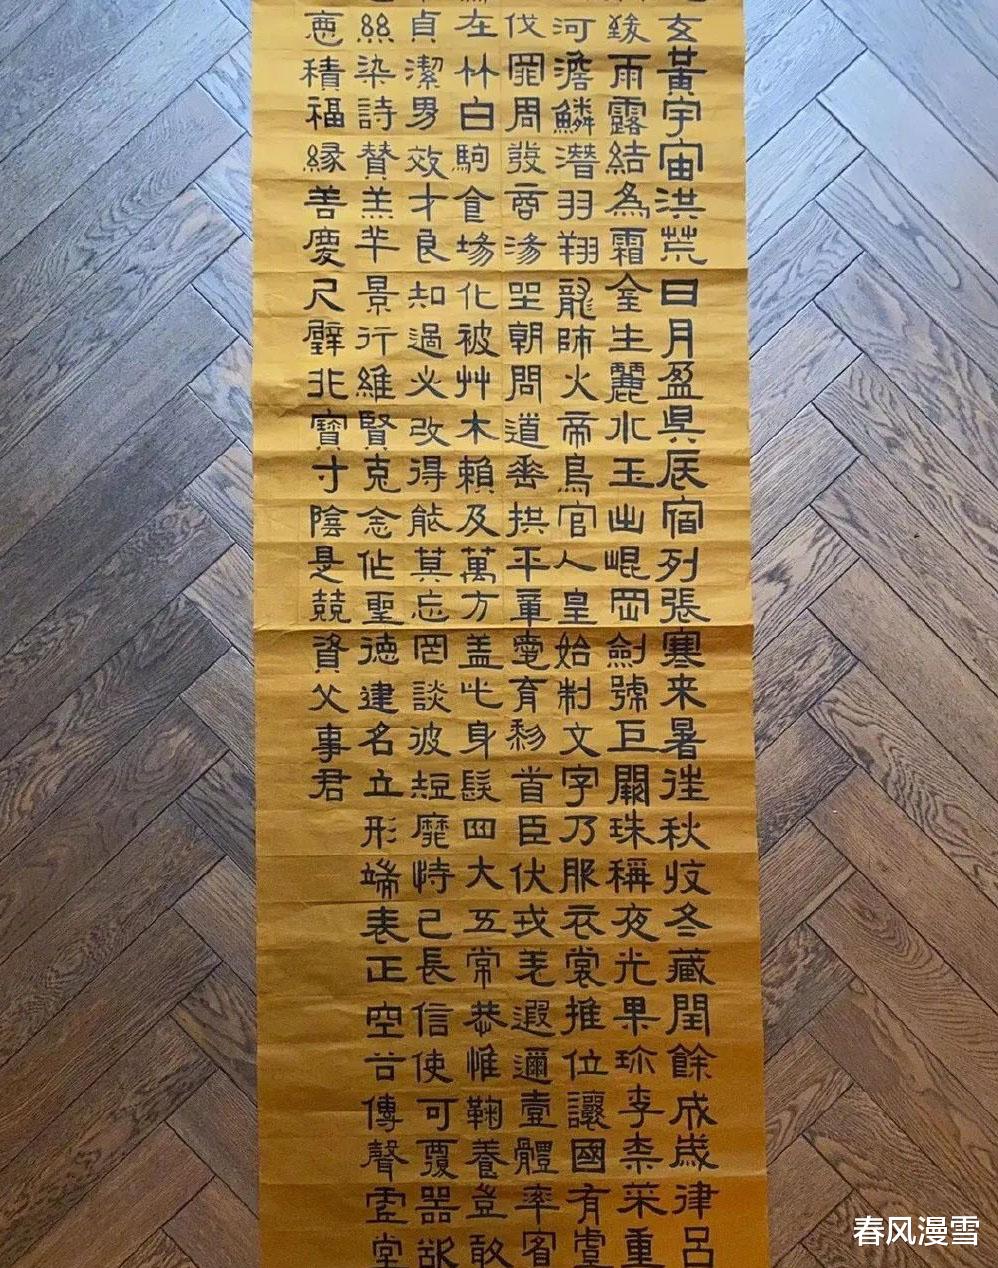 玄黃宇宙洪荒日月盈昃辰宿列張寒来暑往秋收冬藏閏餘成歲律呂
致雨露結為霜金生麗水玉出崐岡劍號巨闕珠稱夜光果珎李柰菜重
河澹鱗潛羽翔龍師火帝鳥官人皇始制文字乃服衣裳推位讓國有虞
伐罪周發商湯坐朝問道垂拱平章愛育黎首臣伏戎羌遐邇壹體率賓
在竹白駒食場化被艸木賴及萬方盖此身髮四大五常恭惟鞠養豈敢
貞潔男效才良知過必改得能莫忘罔談彼短靡恃己長信使可覆器欲
絲染詩贊羔羊景行維賢克念作聖德建名立形端表正空谷傳聲虛堂
惡積福緣善慶尺璧非寶寸陰是競資父事君
春风漫雪